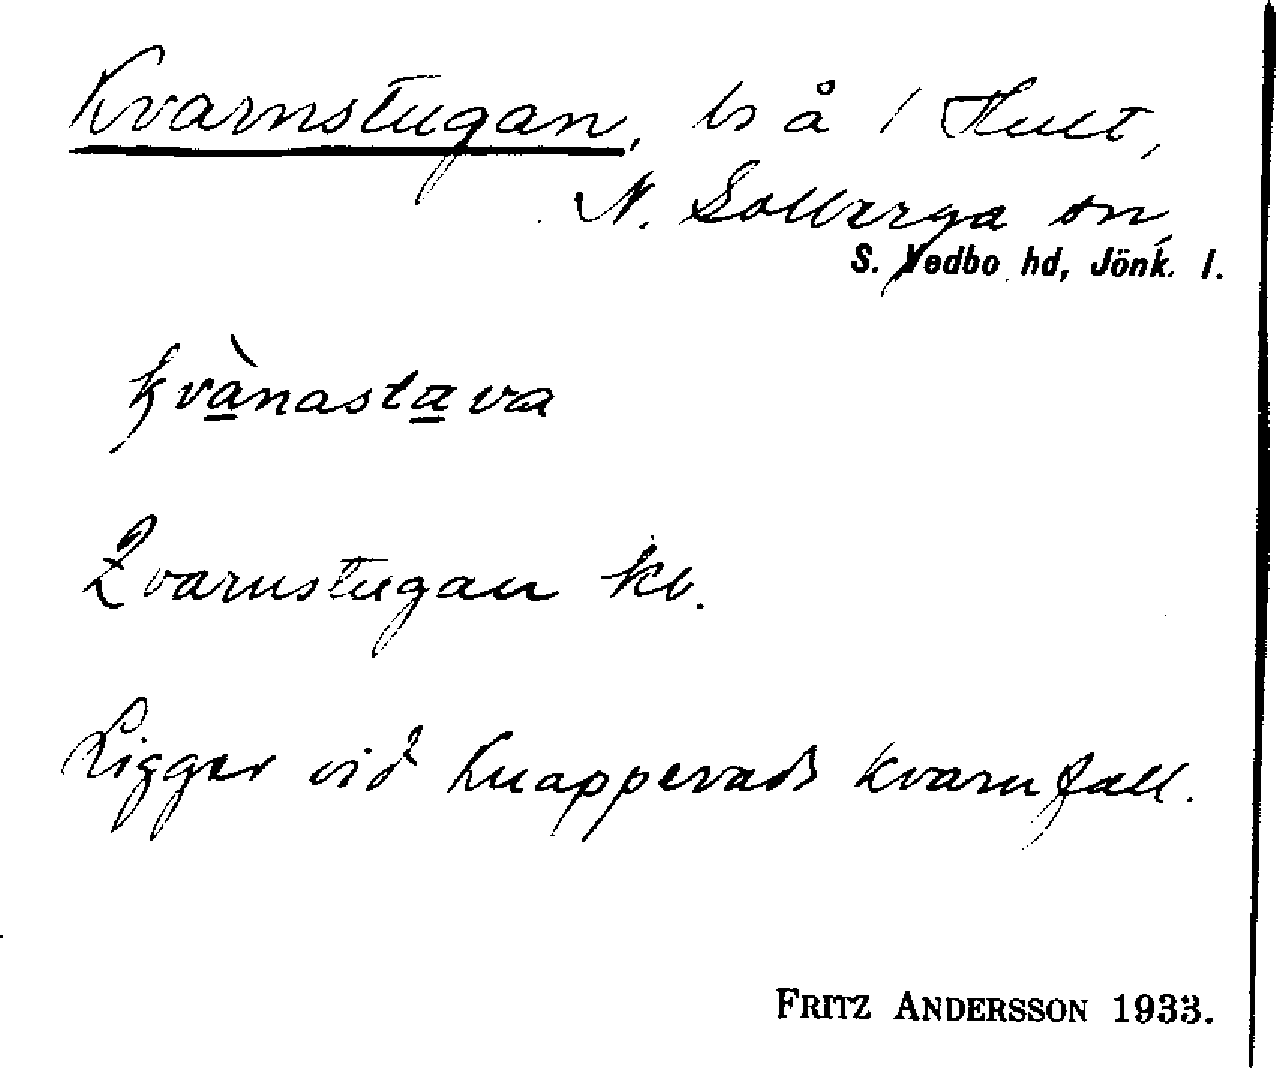 Kvarnstugan, ls å 1 Hult,
N. Solberga sn,
S. Vedbo hd, Jönk. l.
kvànastava
Qvarnstugan kv.
Ligger vid Knapperads kvarnfall.
FRITZ ANDERSSON 1933.